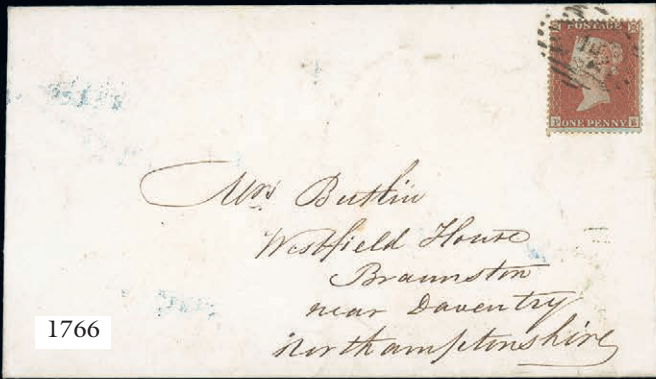 POSTAGE
ONE PENNY
Mrs Butlin
Westfield House
Braunston
near Daventry
Northamptonshire
1766